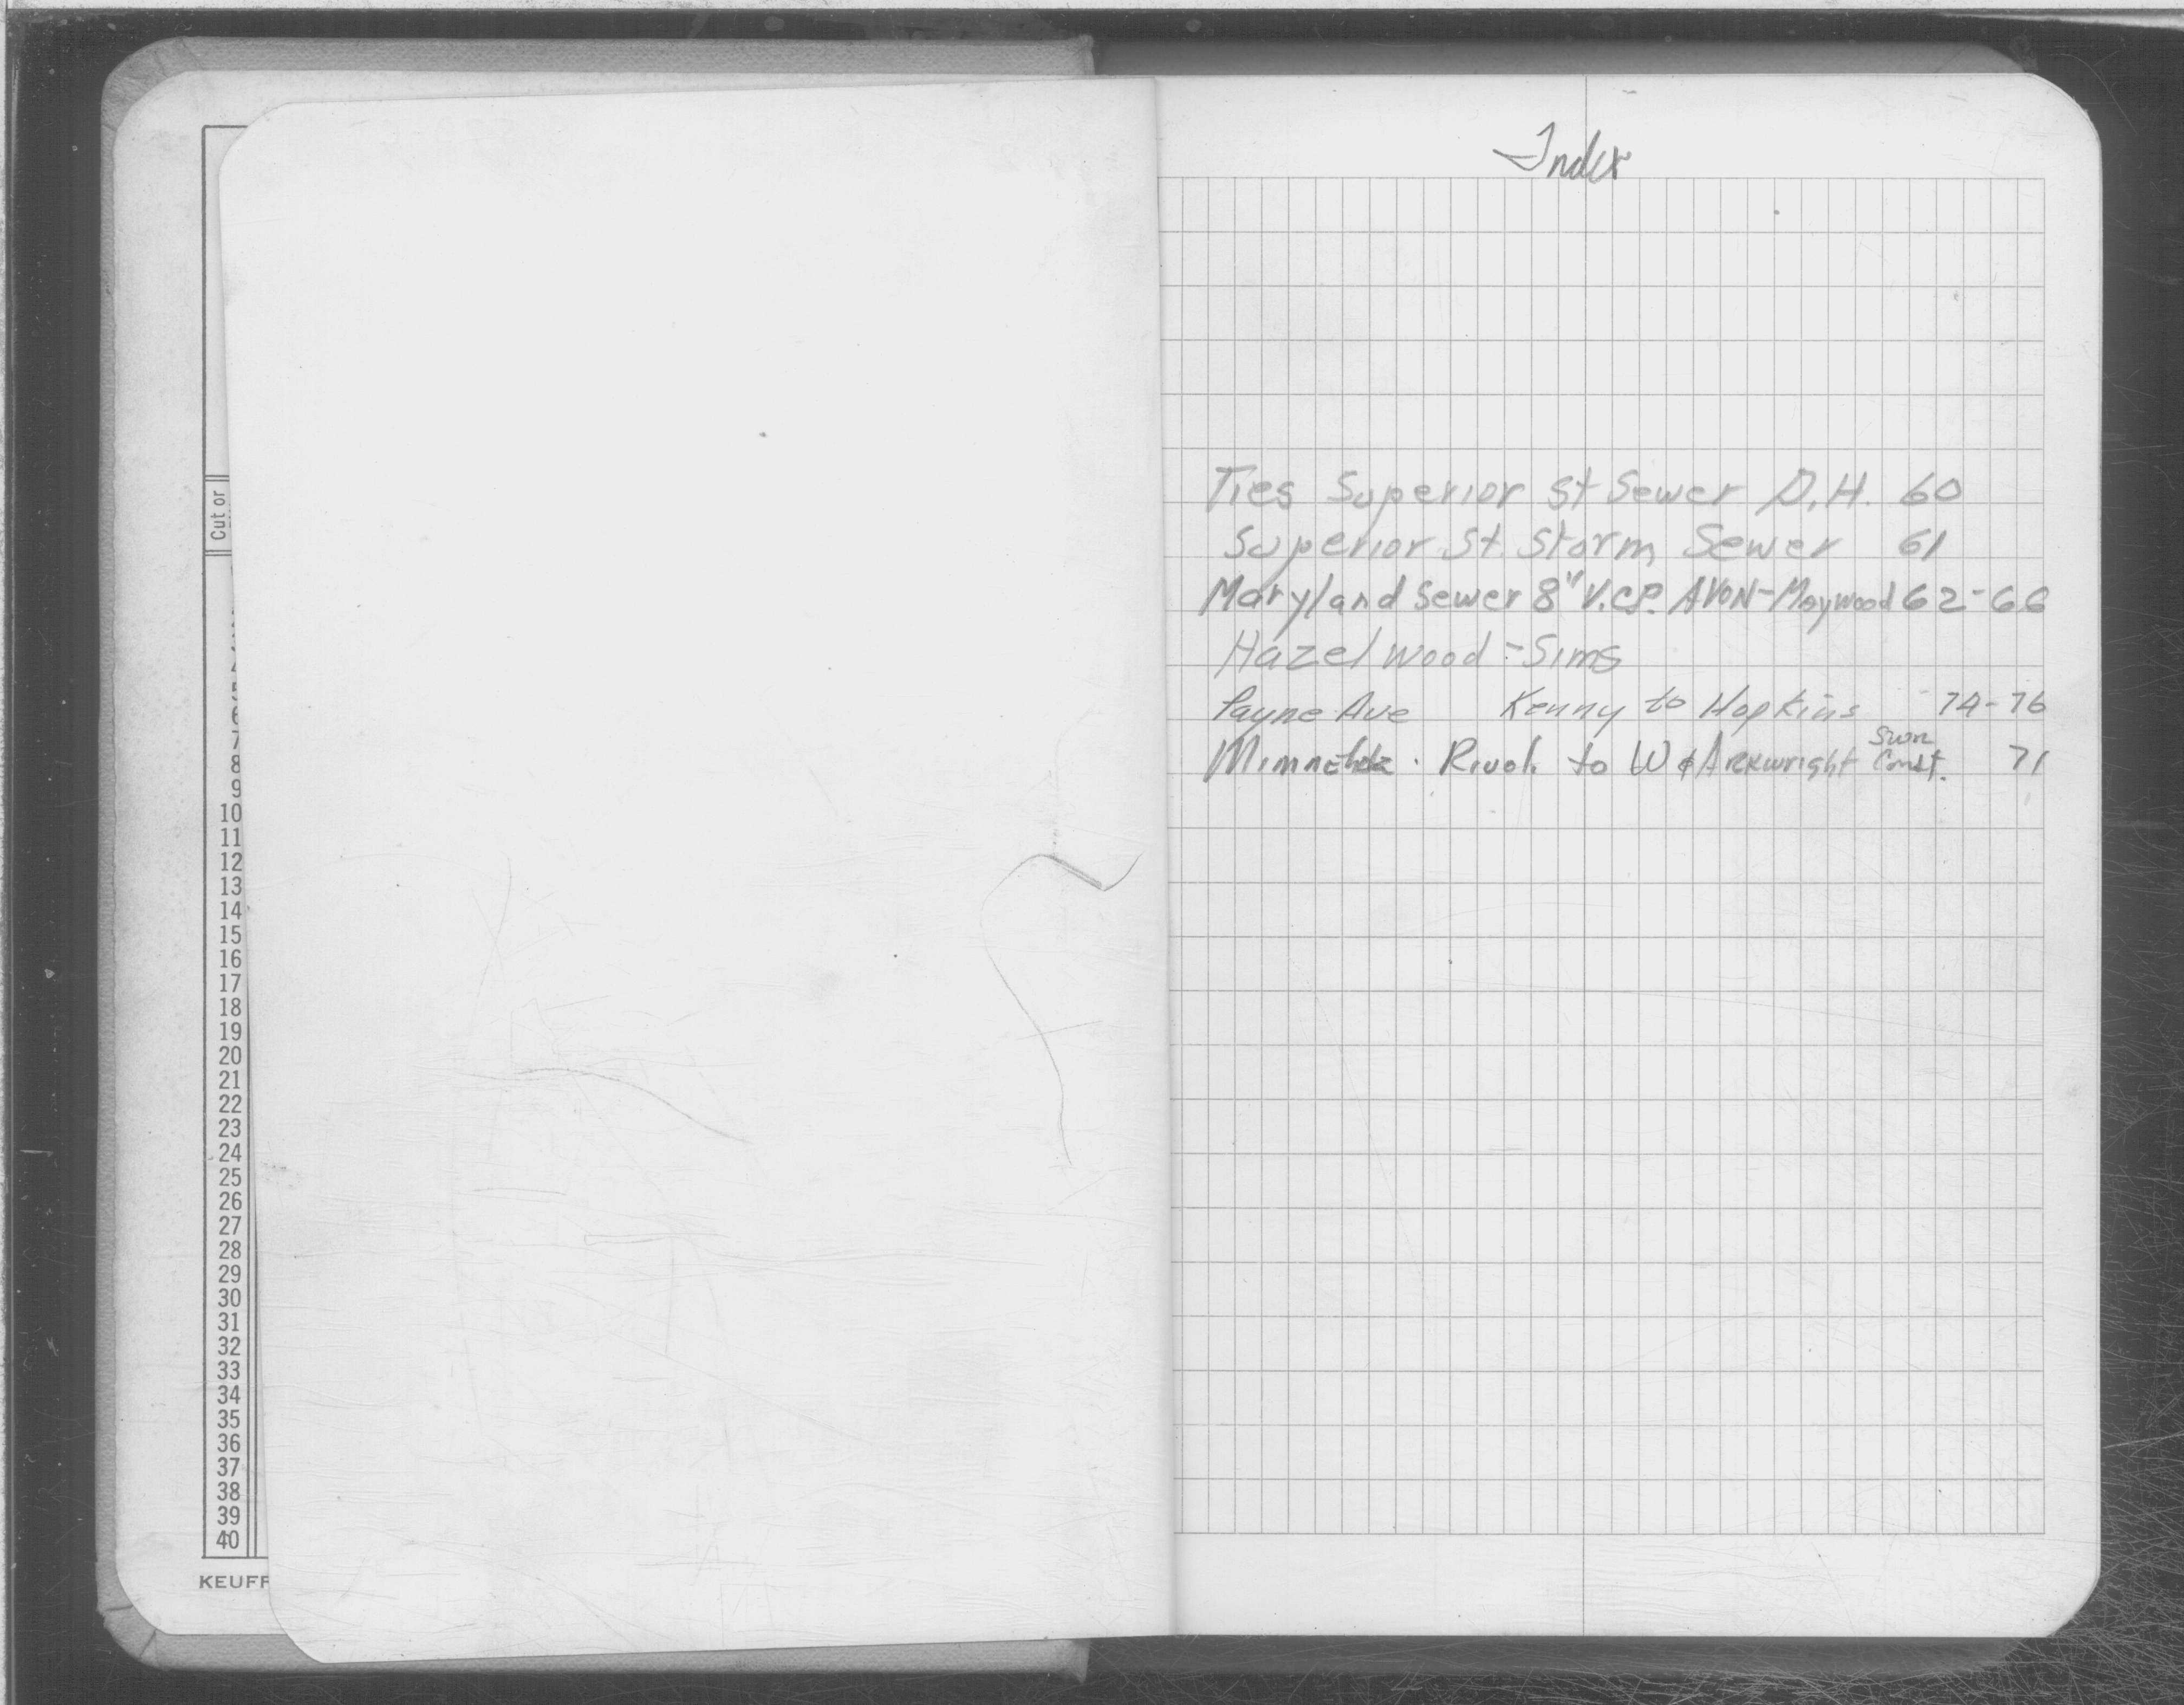 Cut or
7
8
9
10
11
12
13
14
15
16
17
18
19
20
21
22
23
24
25
26
27
28
29
30
31
32
33
34
35
36
37
38
39
40
KEUFF
Index
Ties Superior St Sewer D.H. 60
Superior St. Storm Sewer 61
Maryland Sewer 8" V.C.P. AVON-Maywood 62-66
Hazelwood-Sims
Payne Ave Kenny to Hopkins 74-76
Minnehaha · Rivoli to W ¢ Arkwright Swn Const. 71